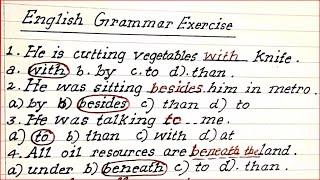 English Grammar Exercise
1. He is cutting vegetables with knife.
a. with b. by c. to d). than.
2. He was sitting besides him in metro.
a) by b) besides c) than d) to
3. He was talking to me.
a) to b) than c) with d) at
4. All oil resources are beneath the land.
a) under b) beneath c) to d). than.